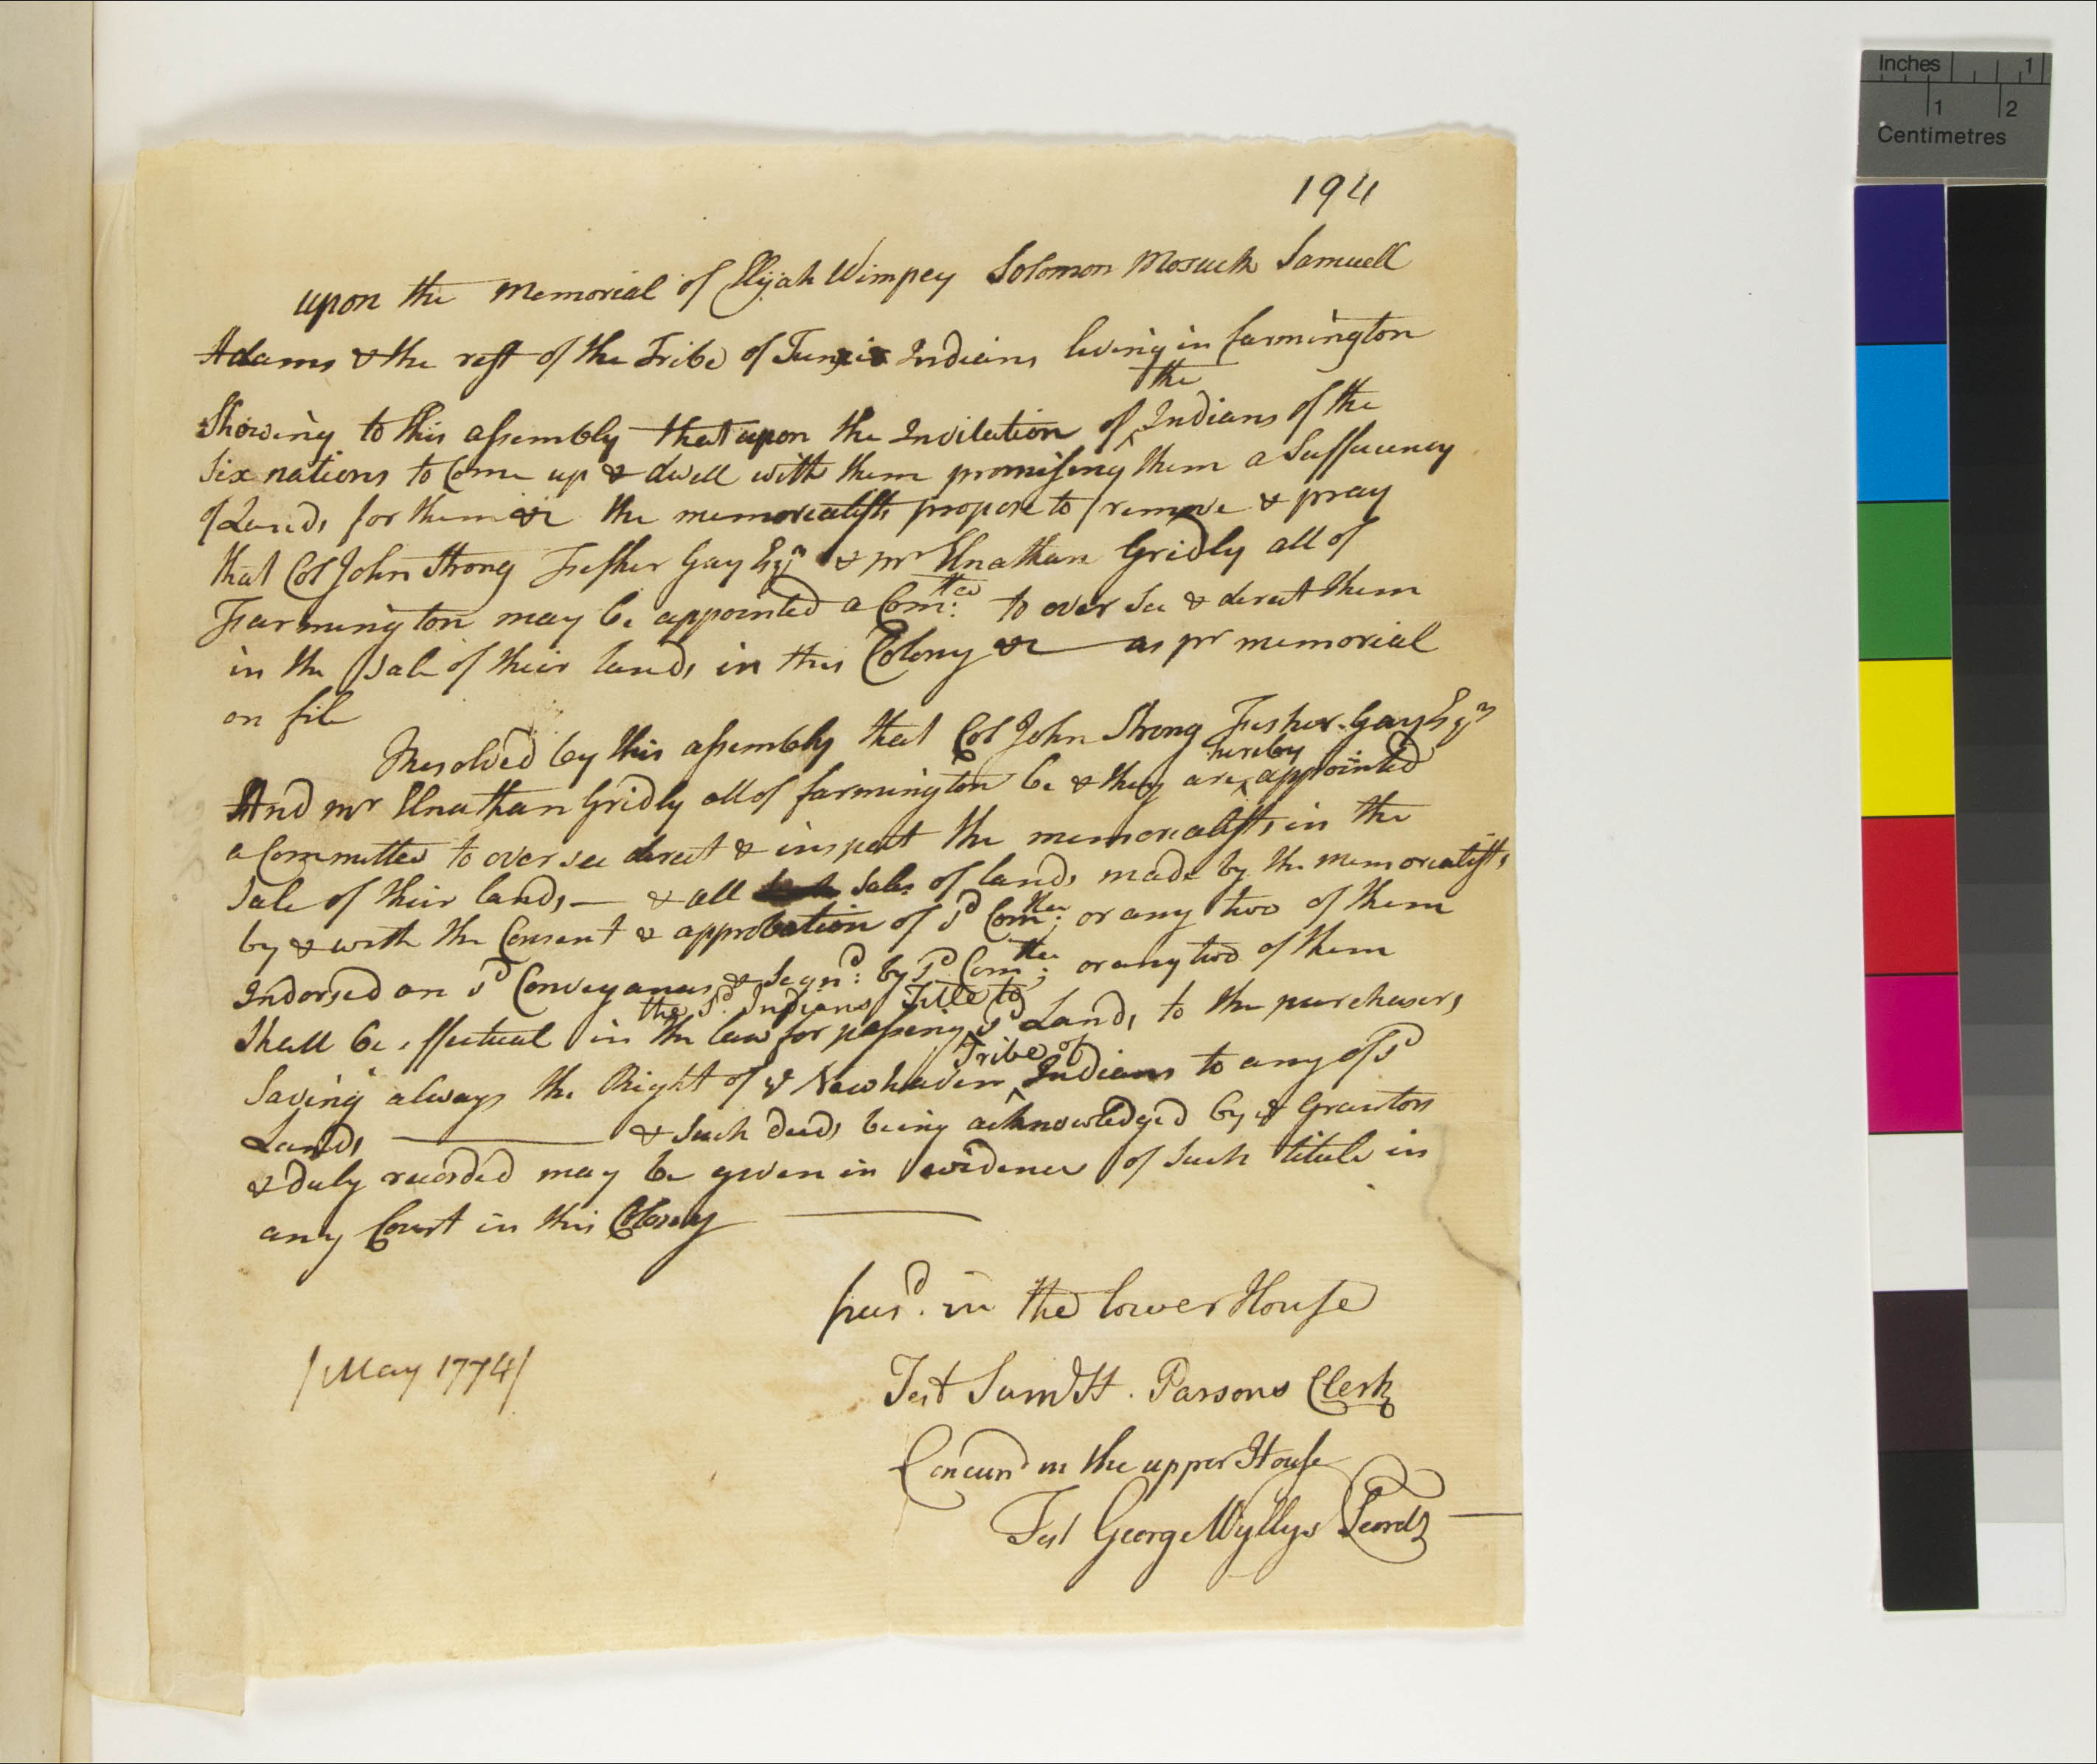 194
upon the memorial of Elijah Wimpey Solomon Mosuck Samuell
Adams & the rest of the Tribe of Tunxis Indians living in farmington
the
Showing to this assembly that upon the Invitation of ^ Indians of the
Six nations to Come up & dwell with them promising them a Suffucency
of Lands for them &c the memorialists propose to remove & pray
that Col John Strong Fisher Gay Esqr & mr Elnathan Gridly all of
Farmington may be appointed a Comtee: to over see & derect them
in the Sale of their lands in this Colony &c — as pr memorial
on file
Resolved by this assembly that Col John Strong Fisher Gay Esqr
hereby
And mr Elnathan Gridly all of farmington be & they are ^ appointed
a Committee to over see derect & inspect the memorialists in the
Sale of their lands, — & all Sales of lands made by the memorialists
by & with the Consent & approbation of sd Comtee: or any two of them
Indorsed on sd Conveyances & Segnd: by sd Comtee; or any two of them
the sd. Indians Title to
Shall be effectual in the law for passing ^ sd Lands to the purchasers
Tribe of
Saving always the Right of ye Newhaven ^ Indians to any of sd
Lands — & Such deeds being acknowledged by ye Grantors
& duly recorded may be given in evidence of Such titule in
any Court in this Colony —
pasd. in the lower House
/May 1774/
Test Saml H. Parsons Clerk
Concurd in the upper House
Test George Wyllys Secretr
Inches 1
1 2
Centimetres